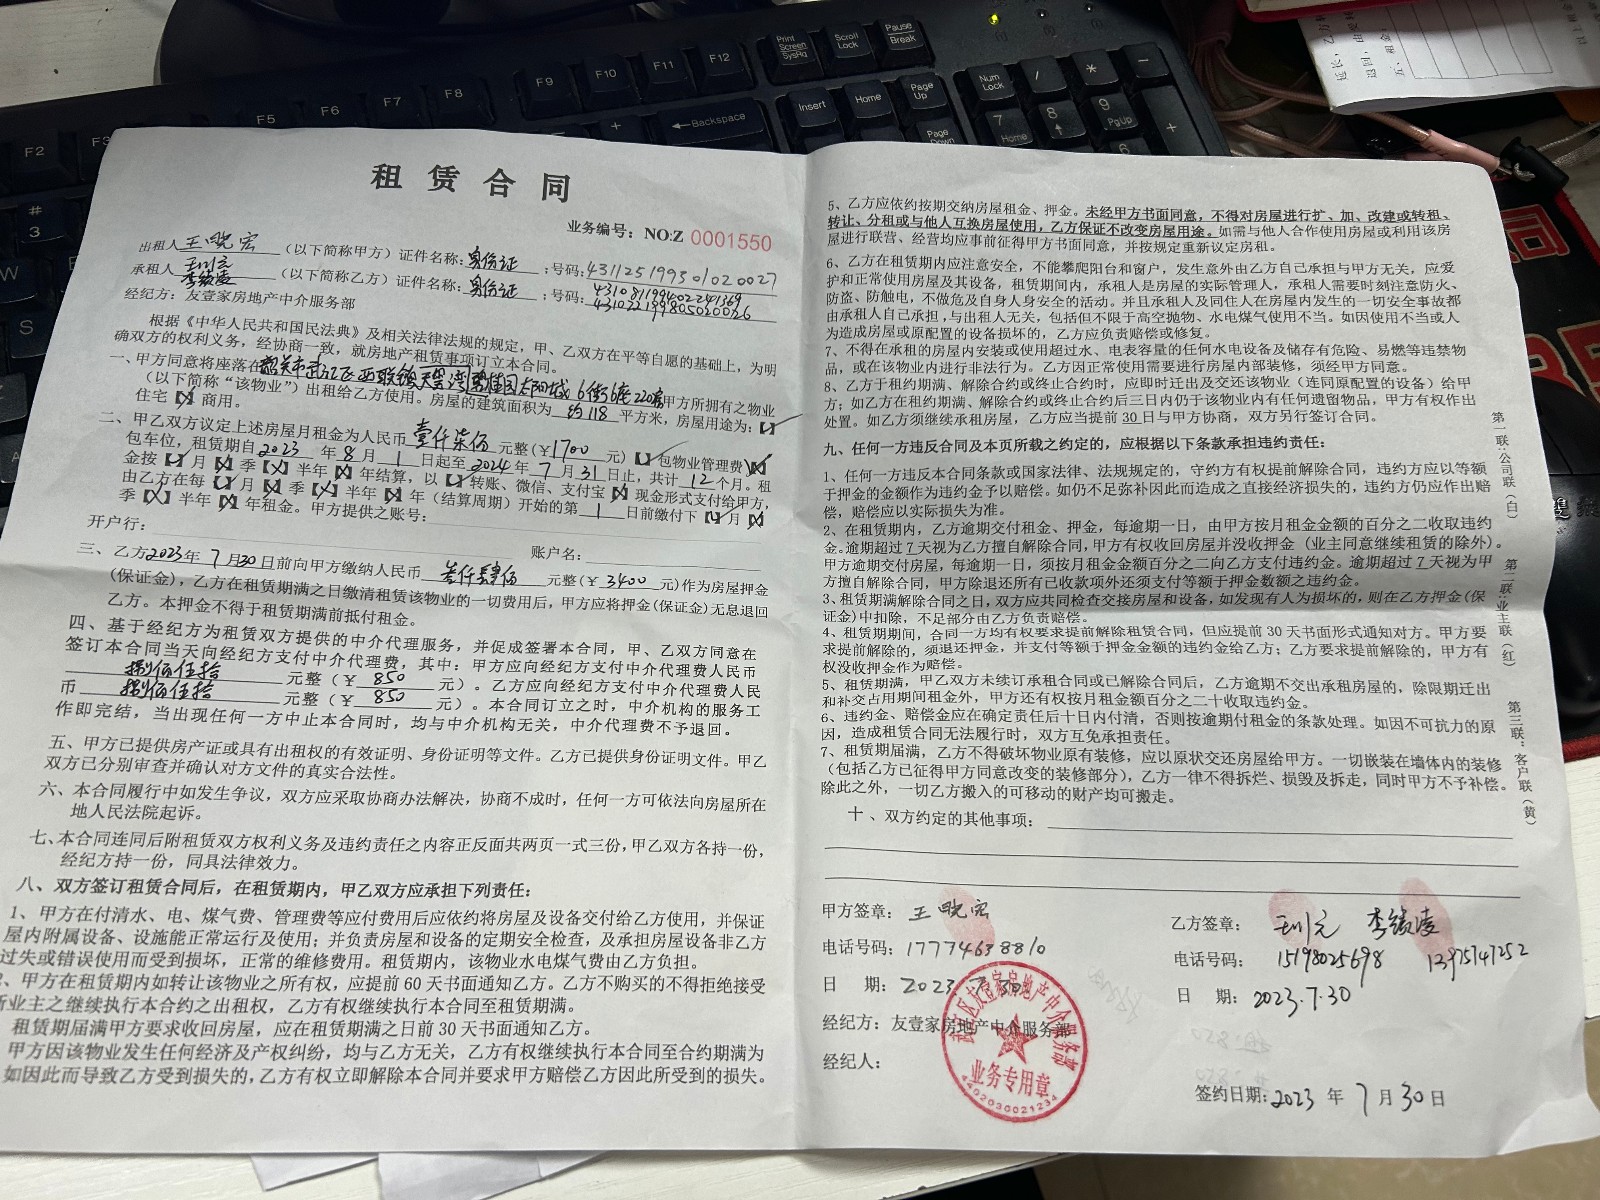 Print Screen SysRq
Scroll Lock
Pause Break
F2
F3
F5
F6
F7
F8
F9
F10
F11
F12
Backspace
Insert
Home
Page Up
Page Down
Num Lock
/
*
-
+
7 Home
8
9 PgUp
6
# 3
W
S
A
租赁合同
业务编号：NO:Z 0001550
出租人 王晓宏 （以下简称甲方）证件名称：身份证；号码：431125199301020027
承租人 李 （以下简称乙方）证件名称：身份证；号码：431081199402241369
431022199805020026
经纪方：友壹家房地产中介服务部
根据《中华人民共和国民法典》及相关法律法规的规定，甲、乙双方在平等自愿的基础上，为明
确双方的权利义务，经协商一致，就房地产租赁事项订立本合同。
一、甲方同意将座落在韶关市武江区西联镇 碧桂园太阳城6街6座220房甲方所拥有之物业
（以下简称“该物业”）出租给乙方使用。房屋的建筑面积为 约118 平方米，房屋用途为：【✓】
住宅【×】商用。
二、甲乙双方议定上述房屋月租金为人民币 壹仟柒佰 元整(￥1700 元)【✓】包物业管理费【×】
包车位，租赁期自2023 年 8 月 1 日起至 2024年 7 月 31 日止，共计 12 个月。租
金按【✓】月【×】季【×】半年【×】年结算，以【✓】转账、微信、支付宝【×】现金形式支付给甲方，
由乙方在每【✓】月【×】季【×】半年【×】年（结算周期）开始的第 1 日前缴付下【✓】月【×】
季【×】半年【×】年租金。甲方提供之账号：
开户行： 账户名：
三、乙方2023年 7 月30日前向甲方缴纳人民币 叁仟肆佰 元整(￥ 3400 元)作为房屋押金
(保证金)，乙方在租赁期满之日缴清租赁该物业的一切费用后，甲方应将押金(保证金)无息退回
乙方。本押金不得于租赁期满前抵付租金。
四、基于经纪方为租赁双方提供的中介代理服务，并促成签署本合同，甲、乙双方同意在
签订本合同当天向经纪方支付中介代理费，其中：甲方应向经纪方支付中介代理费人民币
捌佰伍拾 元整（￥ 850 元）。乙方应向经纪方支付中介代理费人民
币 捌佰伍拾 元整（￥ 850 元）。本合同订立之时，中介机构的服务工
作即完结，当出现任何一方中止本合同时，均与中介机构无关，中介代理费不予退回。
五、甲方已提供房产证或具有出租权的有效证明、身份证明等文件。乙方已提供身份证明文件。甲乙
双方已分别审查并确认对方文件的真实合法性。
六、本合同履行中如发生争议，双方应采取协商办法解决，协商不成时，任何一方可依法向房屋所在
地人民法院起诉。
七、本合同连同后附租赁双方权利义务及违约责任之内容正反面共两页一式三份，甲乙双方各持一份，
经纪方持一份，同具法律效力。
八、双方签订租赁合同后，在租赁期内，甲乙双方应承担下列责任：
1、甲方在付清水、电、煤气费、管理费等应付费用后应依约将房屋及设备交付给乙方使用，并保证
屋内附属设备、设施能正常运行及使用；并负责房屋和设备的定期安全检查，及承担房屋设备非乙方
过失或错误使用而受到损坏，正常的维修费用。租赁期内，该物业水电煤气费由乙方负担。
、甲方在租赁期内如转让该物业之所有权，应提前60天书面通知乙方。乙方不购买的不得拒绝接受
新业主之继续执行本合约之出租权，乙方有权继续执行本合同至租赁期满。
租赁期届满甲方要求收回房屋，应在租赁期满之日前30天书面通知乙方。
甲方因该物业发生任何经济及产权纠纷，均与乙方无关，乙方有权继续执行本合同至合约期满为
如因此而导致乙方受到损失的，乙方有权立即解除本合同并要求甲方赔偿乙方因此所受到的损失。
5、乙方应依约按期交纳房屋租金、押金。未经甲方书面同意，不得对房屋进行扩、加、改建或转租、
转让、分租或与他人互换房屋使用，乙方保证不改变房屋用途。如需与他人合作使用房屋或利用该房
屋进行联营、经营均应事前征得甲方书面同意，并按规定重新议定房租。
6、乙方在租赁期内应注意安全，不能攀爬阳台和窗户，发生意外由乙方自己承担与甲方无关，应爱
护和正常使用房屋及其设备，租赁期间内，承租人是房屋的实际管理人，承租人需要时刻注意防火、
防盗、防触电，不做危及自身人身安全的活动。并且承租人及同住人在房屋内发生的一切安全事故都
由承租人自己承担，与出租人无关，包括但不限于高空抛物、水电煤气使用不当。如因使用不当或人
为造成房屋或原配置的设备损坏的，乙方应负责赔偿或修复。
7、不得在承租的房屋内安装或使用超过水、电表容量的任何水电设备及储存有危险、易燃等违禁物
品，或在该物业内进行非法行为。乙方因正常使用需要进行房屋内部装修，须经甲方同意。
8、乙方于租约期满、解除合约或终止合约时，应即时迁出及交还该物业（连同原配置的设备）给甲
方；如乙方在租约期满、解除合约或终止合约后三日内仍于该物业内有任何遗留物品，甲方有权作出
处置。如乙方须继续承租房屋，乙方应当提前30日与甲方协商，双方另行签订合同。
九、任何一方违反合同及本页所载之约定的，应根据以下条款承担违约责任：
1、任何一方违反本合同条款或国家法律、法规规定的，守约方有权提前解除合同，违约方应以等额
于押金的金额作为违约金予以赔偿。如仍不足弥补因此而造成之直接经济损失的，违约方仍应作出赔
偿，赔偿应以实际损失为准。
2、在租赁期内，乙方逾期交付租金、押金，每逾期一日，由甲方按月租金金额的百分之二收取违约
金。逾期超过7天视为乙方擅自解除合同，甲方有权收回房屋并没收押金（业主同意继续租赁的除外）。
甲方逾期交付房屋，每逾期一日，须按月租金金额的百分之二向乙方支付违约金。逾期超过7天视为甲
方擅自解除合同，甲方除退还所有已收款项外还须支付等额于押金数额之违约金。
3、租赁期满解除合同之日，双方应共同检查交接房屋和设备，如发现有人为损坏的，则在乙方押金(保
证金)中扣除，不足部分由乙方负责赔偿。
4、租赁期期间，合同一方均有权要求提前解除租赁合同，但应提前30天书面形式通知对方。甲方要
求提前解除的，须退还押金，并支付等额于押金金额的违约金给乙方；乙方要求提前解除的，甲方有
权没收押金作为赔偿。
5、租赁期满，甲乙双方未续订承租合同或已解除合同后，乙方逾期不交出承租房屋的，除限期迁出
和补交占用期间租金外，甲方还有权按月租金额百分之二十收取违约金。
6、违约金、赔偿金应在确定责任后十日内付清，否则按逾期付租金的条款处理。如因不可抗力的原
因，造成租赁合同无法履行时，双方互免承担责任。
7、租赁期届满，乙方不得破坏物业原有装修，应以原状交还房屋给甲方。一切嵌装在墙体内的装修
（包括乙方已征得甲方同意改变的装修部分），乙方一律不得拆烂、损毁及拆走，同时甲方不予补偿。
除此之外，一切乙方搬入的可移动的财产均可搬走。
十、双方约定的其他事项：
第一联:公司联（白）
第二联:业主联（红）
第三联：客户联（黄）
甲方签章： 王晓宏
乙方签章： 李
电话号码：17774638810
电话号码： 15198025698 13975747252
日 期：2023.7.30
日 期：2023.7.30
经纪方：友壹家房地产中介服务部
经纪人：
武江区友壹家房地产中介服务部
业务专用章
4402030021234
签约日期：2023 年 7 月 30 日